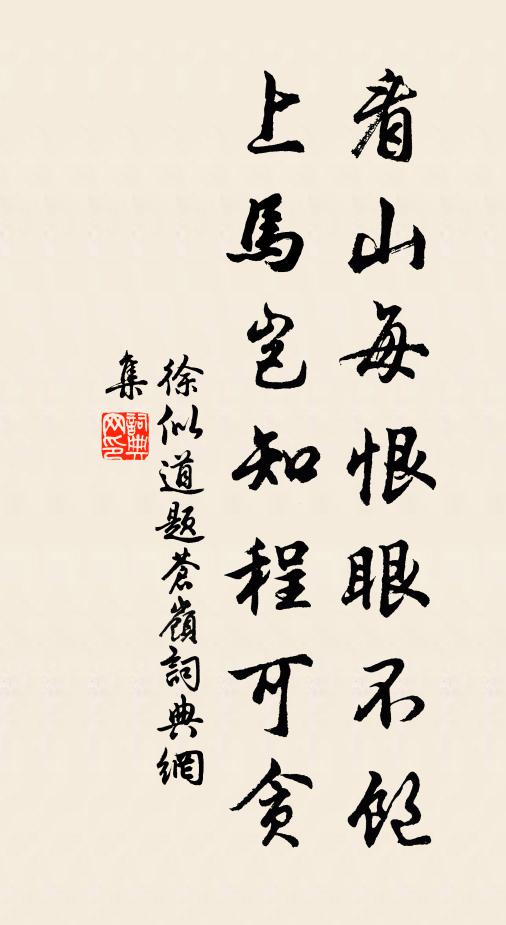 看山每恨眼不飽
上馬豈知程可貪
徐似道題蒼嶺詞典網
集
詞典
网印